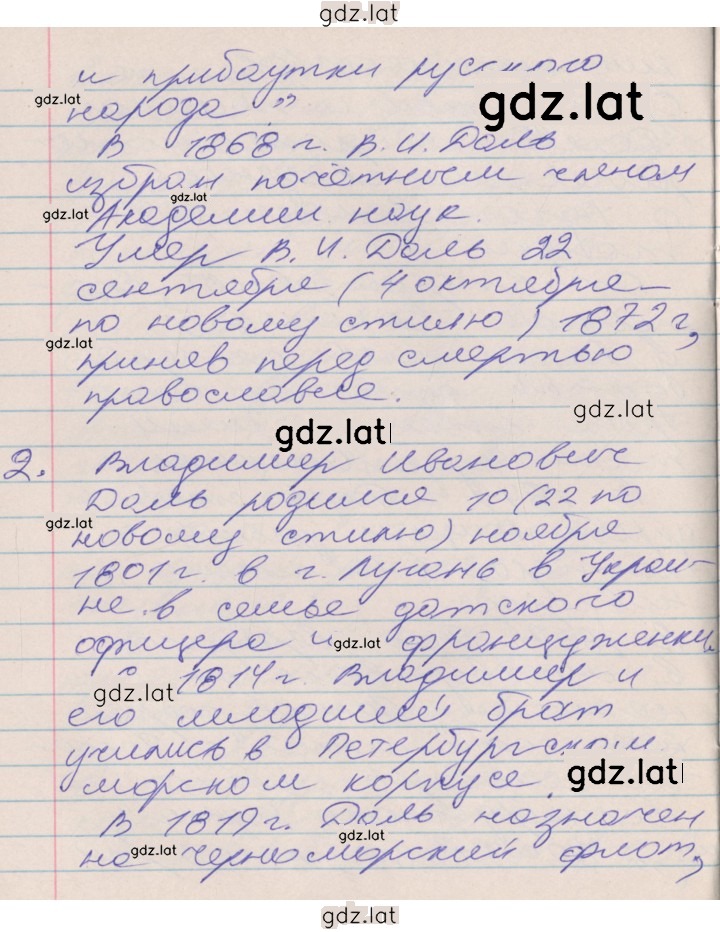 gdz.lat
и прибаутки русского
gdz.lat
gdz.lat
народа"
В 1868 г. В. И. Даль
избран почётным членом
gdz.lat
gdz.lat
Академии наук.
Умер В. И. Даль 22
сентября (4 октября -
по новому стилю) 1872 г,
gdz.lat
приняв перед смертью
православие.
gdz.lat
gdz.lat
2. Владимир Иванович
Даль родился 10 (22 по
gdz.lat
новому стилю) ноября
1801 г. в г. Лугань в Украи-
не в семье датского
офицера и француженки.
gdz.lat
С 1814 г. Владимир и
gdz.lat
его младший брат
учились в Петербургском
морском корпусе.
gdz.lat
В 1819 г. Даль назначен
gdz.lat
на Черноморский флот,
gdz.lat
gdz.lat